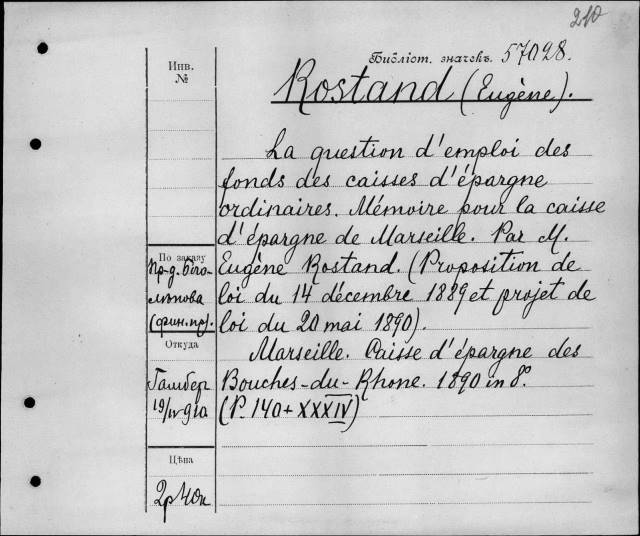 210
Библіот. значекъ. 57028.
Инв.
№
Rostand (Eugène).
La question d'emploi des
fonds des caisses d'épargne
ordinaires. Mémoire pour la caisse
d'épargne de Marseille. Par M.
Eugène Rostand. (Proposition de
loi du 14 décembre 1889 et projet de
loi du 20 mai 1890).
Marseille. Caisse d'épargne des
Bouches-du-Rhone. 1890 in 8º.
(P. 140 + XXXIV)
По заказу
пр-д.
(фин. пр).
Откуда
Гамбер
19/IV 91 г.
Цѣна
2р 40к